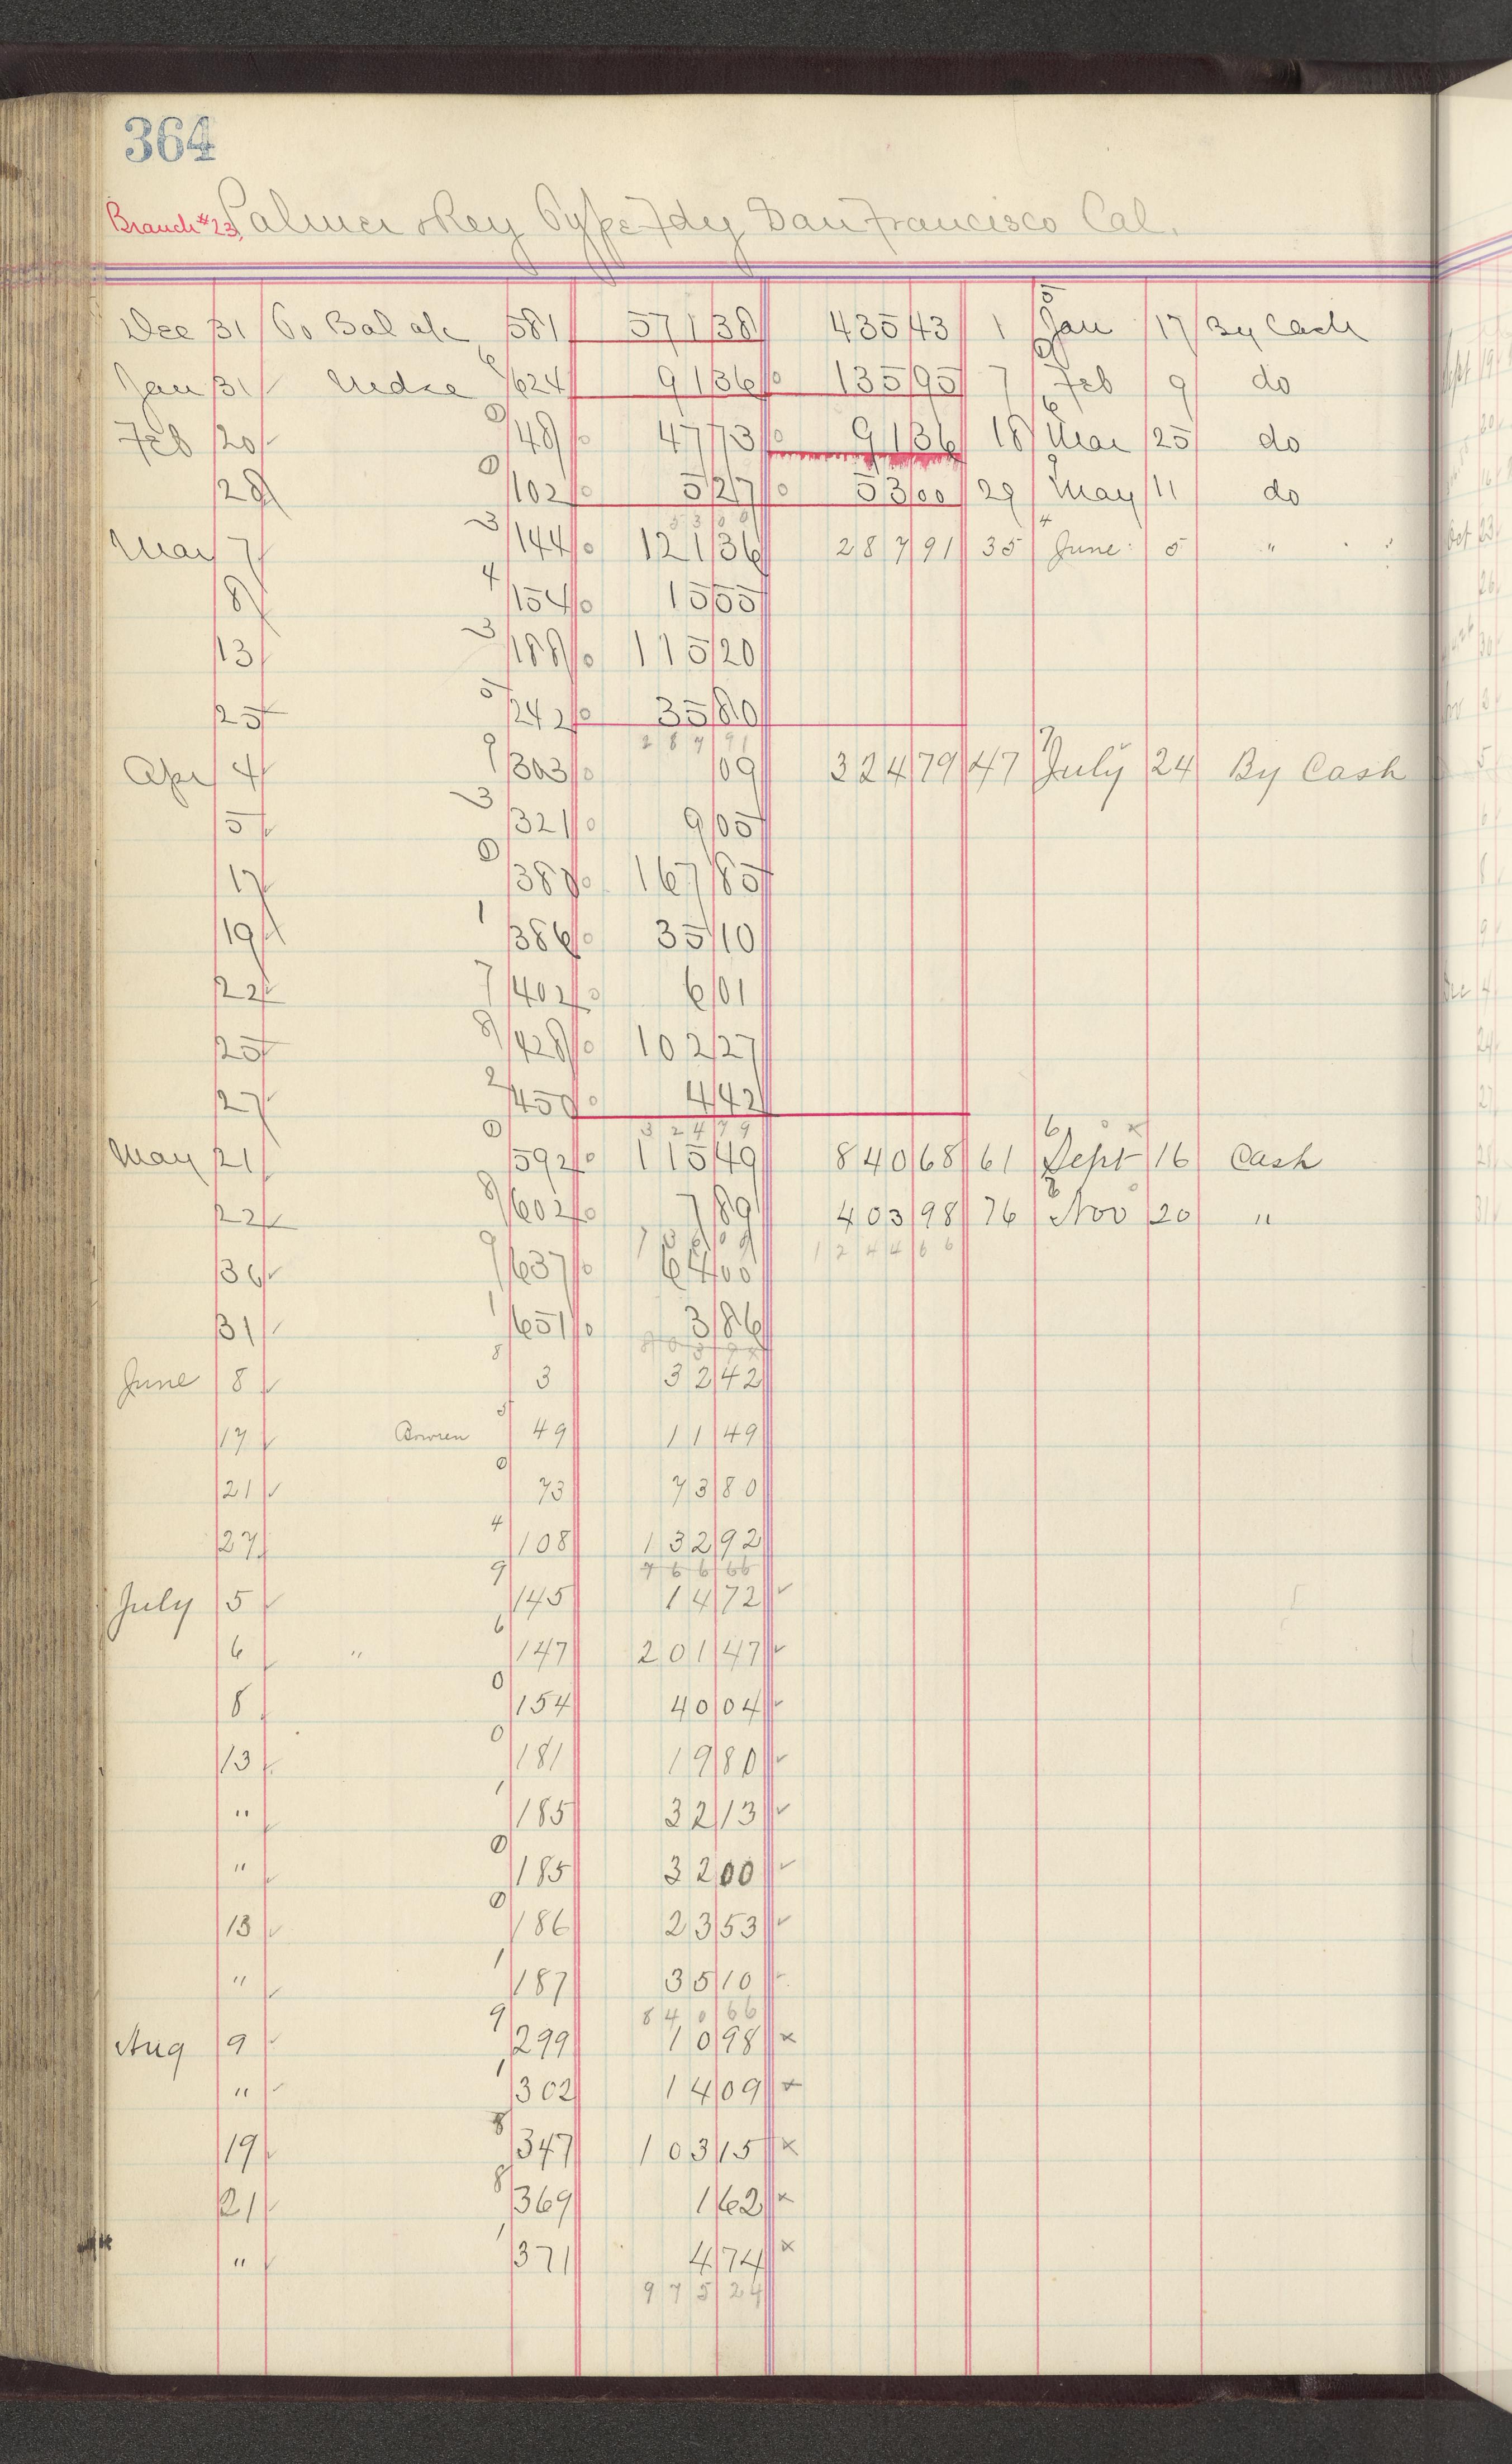 364
Branch #23. Palmer & Rey Type Fdy San Francisco Cal.
Dec 31 To Bal a/c 581 571 38 435 43 1 5 Jan 17 By Cash
Jan 31 Mdse 6 624 91 36 135 95 7 Feb 9 do
Feb 20 0 48 47 73 91 36 18 6 Mar 25 do
28 0 102 5 27 53 00 29 9 May 11 do
53 00
Mar 7 3 144 121 36 287 91 35 4 June 5 "
8 4 154 15 55
13 3 188 115 20
25 5 242 35 80
287 91
Apr 4 9 303 09 324 79 47 7 July 24 By Cash
5 3 321 9 05
17 0 380 167 85
19 1 386 35 10
22 7 402 6 01
25 8 428 102 27
27 2 450 4 42
324 79
May 21 0 592 115 49 840 68 61 6 Sept 16 Cash
22 8 602 7 89 403 98 76 8 Nov 20 "
1244 66
30 9 637 64 00
31 1 651 3 86
June 8 8 3 32 42
17 Bowren 5 49 11 49
21 0 73 73 80
27 4 108 132 92
766 66
July 5 9 145 14 72
6 " 6 147 201 47
8 0 154 40 04
13 0 181 19 80
" 1 185 32 13
" 0 185 32 00
13 0 186 23 53
" 1 187 35 10
840 66
Aug 9 9 299 10 98 x
" 1 302 14 09 x
19 8 347 103 15 x
21 8 369 1 62 x
" 1 371 4 74 x
975 24